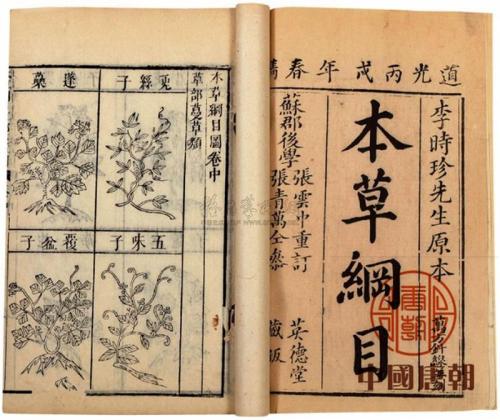 道光丙戌年春鐫
李時珍先生原本
本草綱目
蘇郡後學
張雲中重訂
張青萬仝參
英德堂
藏版
中國唐朝
本草綱目圖卷中
草部蔓草類
兎絲子
五味子
蓬蘽
覆盆子